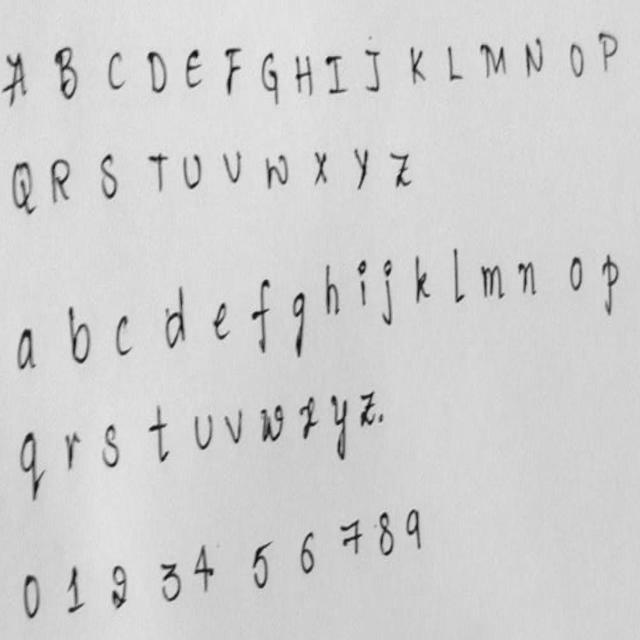 A B C D E F G H I J K L M N O P
Q R S T U V W X Y Z
a b c d e f g h i j k l m n o p
q r s t u v w x y z.
0 1 2 3 4 5 6 7 8 9